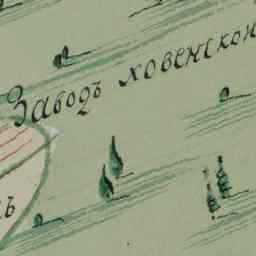 Заводъ ховенской